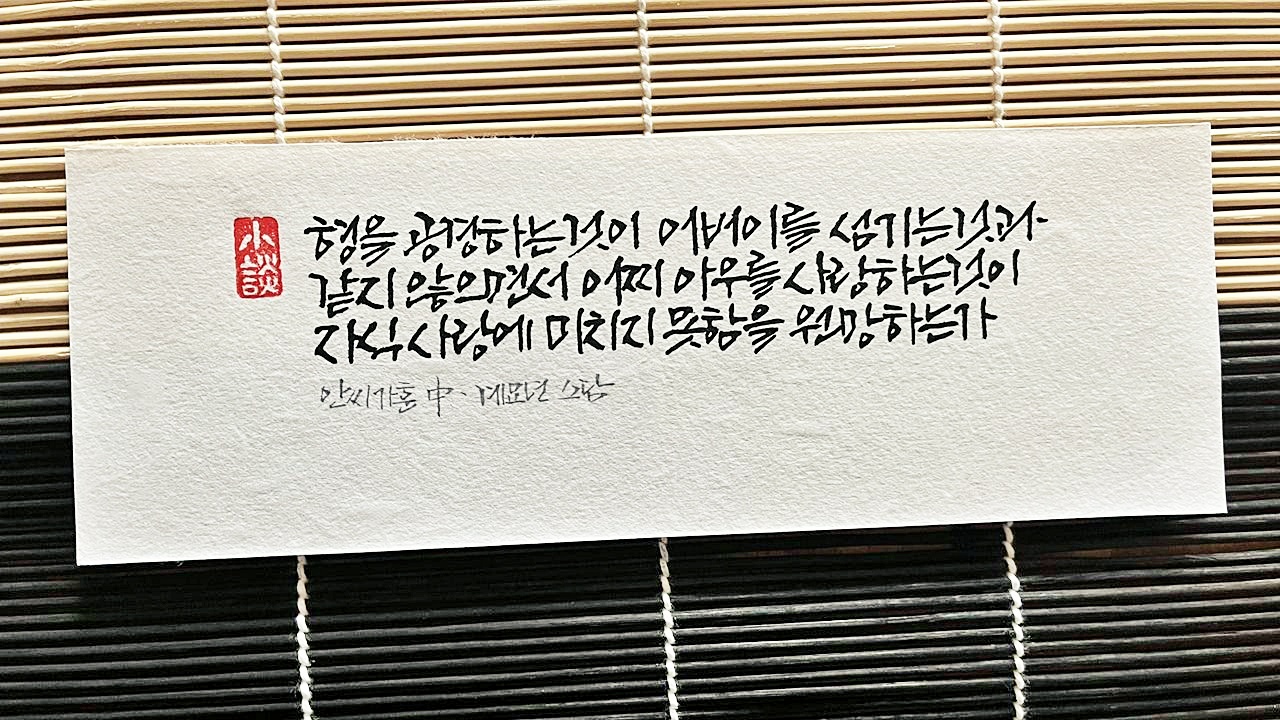 小談
형을 공경하는것이 어버이를 섬기는것과
같지 않으면서 어찌 아우를 사랑하는것이
자식 사랑에 미치지 못함을 원망하는가
안씨가훈 中· 계묘년 소담